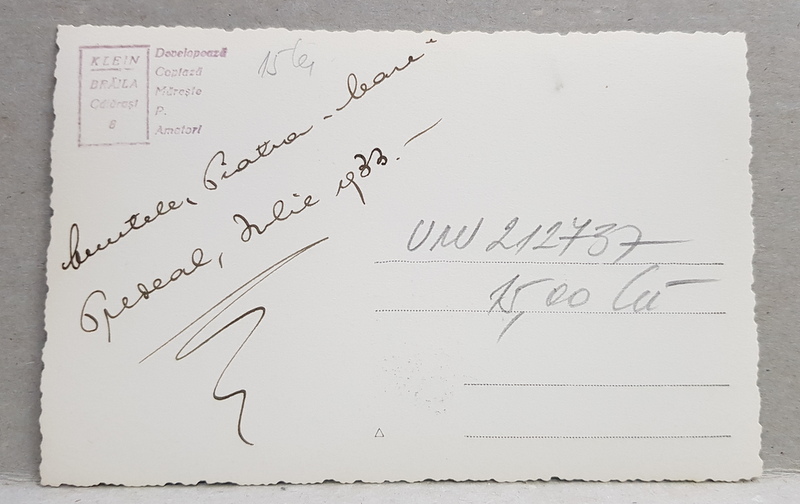 KLEIN
BRĂILA
Călărași
8
Developează
Copiază
Mărește
P.
Amatori
15 lei
Muntele, Piatra-Mare"
Predeal, Iulie 1933.—
UNU 212737
15,00 lei